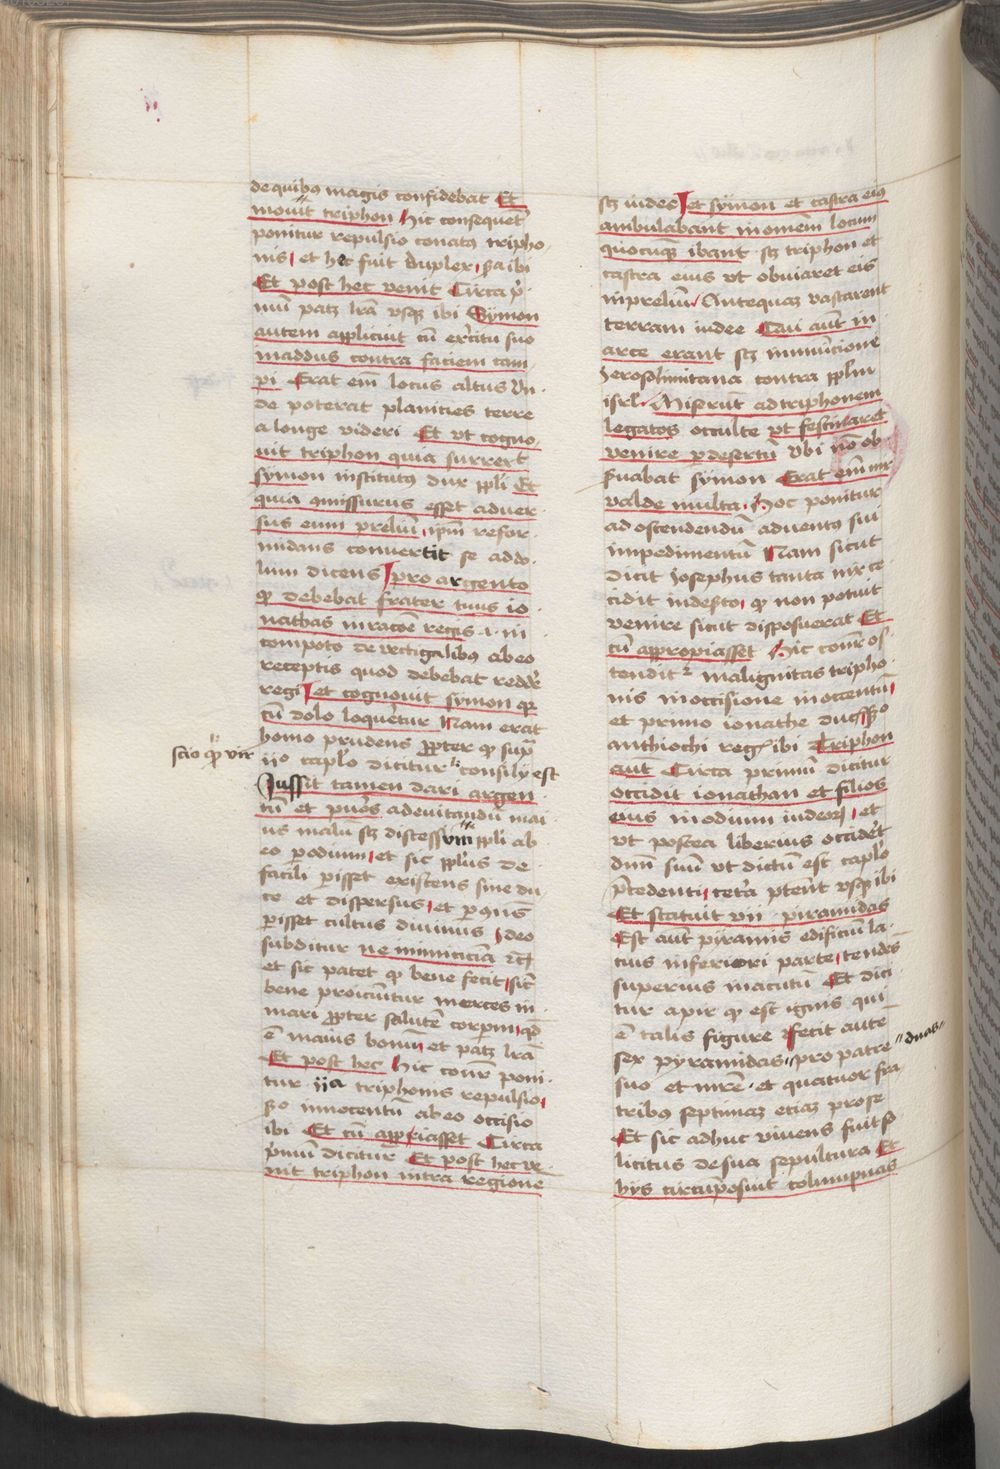 de quibus magis confidebat Et
mouit triphon Hic consequent̄
ponitur repulsio conatus tripho
nis et hec fuit duplex ẜa ibi
Et post hec venit Circa p̄
mū patz lr̄a vsqz ibi Symon
autem applicuit cū exercitu suo
maddus contra faciem cam
pi Erat em̄ locus altus vn
de poterat planities terre
a longe videri Et vt cogno
uit triphon quia surrexit
symon institutus dux ppli Et
quia ꝯmissurus esset aduer
sus eum preliū ipm̄ refor
midans conuertit se ad do
lum dicens pro argento
qd debebat frater tuus io
nathas in racoē regis .i. in
compoto de vectigalibus ab eo
receptis quod debebat redde
regi et cognouit symon qz
cū dolo loqueretur Nam erat
homo prudens ꝓpter qd sup̄
ijo caplo dicitur consilij est
scio qd vir
Jussit tamen dari argen
tū et pueros ad euitandū mai
us malū scz discessum ppli ab
eo ꝑ odium et sic pplus de
facili ꝑisset existens sine du
ce et dispersus et ꝑ ꝯns
ꝑisset cultus diuinus ideo
subditur ne inimicicia zc
et sic patet qd bene fecit sic
bene proiciuntur merces in
mari ꝓpter salutē corporum qd
ē maius bonū et patz lr̄a
Et post hec Hic cōn̄r poni
tur ija triphonis repulsio
ẜo innocentū ab eo occisio
ibi Et cū appr̄iasset Circa
pīmū dicitur Et post hec ve
nit triphon intra regionē
scz iudee et symon et castra eius
ambulabant in omnem locum
quocumqz ibant scz triphon et
castra eius vt obuiaret eis
in prelium Antequaz vastarent
terram iudee Qui aūt in
arce erant scz in municione
Jerosolimitana contra pplm
isrl Miserūt ad triphonem
legatos occulte vt festinaret
venire ꝑ desertū vbi nō ob
ẜuabat symon Erat em̄ nix
valde multa Hoc ponitur
ad ostendendū aduentus sui
impedimentū Nam sicut
dicit Josephus tanta nix ce
cidit in deserto qd non potuit
venire sicut disposuerat Et
cū appropiasset Hic cōn̄r os
tenditr malignitas tripho
nis in occisione innocentū
et primo ionathe ducis ẜo
anthiochi regis ibi Triphon
aūt Circa primū dicitur
occidit ionathan et filios
eius in odium iudeorum et
vt postea liberius occideret
dnm̄ suū vt dictū est caplo
p̄cedenti cetera ptent vsqz ibi
Et statuit vii piramidas
Est aūt pyramis edificiū la
tius inferiori parte tendēs
superius in acutū Et dici
tur a pir qd est ignis qui
ē talis figure fecit aūte
sex pyramidas pro patre duas
suo et mr̄e et quatuor fra
tribus septimaz etiaz pro se
Et sic adhuc viuens fuit so
licitus de sua sepultura Et
hys circūposuit columpnas